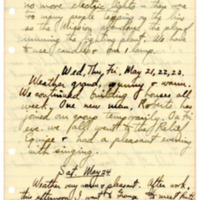 no more electric lights – there was
so many people tapping on the line
so the Mission abandoned the plan of
running the lighting plant. We had
to use candles & one lamp.
Wed, Thu, Fri, May 21, 22, 23.
Weather grand, sunny & warm.
We continued building houses all
week, One new man, Roberts has
joined our group temporarily. On Fri
eve. we all went to the Relief
and had a pleasant evening
with singing.
Sat. May 24
Weather very warm & pleasant. After work,
this afternoon I went to